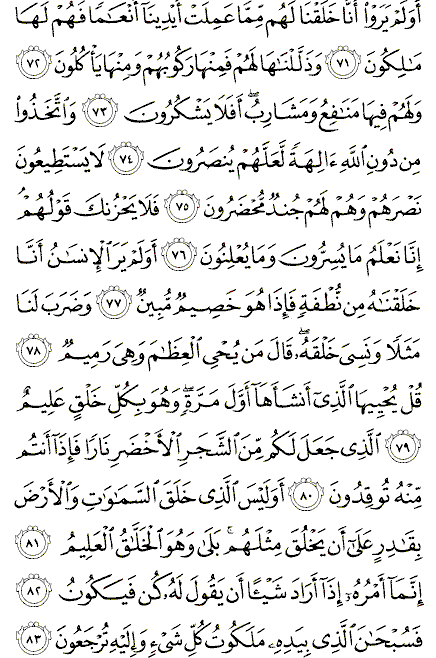 أَوَلَمْ يَرَوْا۟ أَنَّا خَلَقْنَا لَهُم مِّمَّا عَمِلَتْ أَيْدِينَآ أَنْعَٰمًا فَهُمْ لَهَا
مَٰلِكُونَ ﴿٧١﴾ وَذَلَّلْنَٰهَا لَهُمْ فَمِنْهَا رَكُوبُهُمْ وَمِنْهَا يَأْكُلُونَ ﴿٧٢﴾
وَلَهُمْ فِيهَا مَنَٰفِعُ وَمَشَارِبُ ۖ أَفَلَا يَشْكُرُونَ ﴿٧٣﴾ وَٱتَّخَذُوا۟
مِن دُونِ ٱللَّهِ ءَالِهَةً لَّعَلَّهُمْ يُنصَرُونَ ﴿٧٤﴾ لَا يَسْتَطِيعُونَ
نَصْرَهُمْ وَهُمْ لَهُمْ جُندٌ مُّحْضَرُونَ ﴿٧٥﴾ فَلَا يَحْزُنكَ قَوْلُهُمْ ۘ
إِنَّا نَعْلَمُ مَا يُسِرُّونَ وَمَا يُعْلِنُونَ ﴿٧٦﴾ أَوَلَمْ يَرَ ٱلْإِنسَٰنُ أَنَّا
خَلَقْنَٰهُ مِن نُّطْفَةٍ فَإِذَا هُوَ خَصِيمٌ مُّبِينٌ ﴿٧٧﴾ وَضَرَبَ لَنَا
مَثَلًا وَنَسِىَ خَلْقَهُۥ ۖ قَالَ مَن يُحْىِ ٱلْعِظَٰمَ وَهِىَ رَمِيمٌ ﴿٧٨﴾
قُلْ يُحْيِيهَا ٱلَّذِىٓ أَنشَأَهَآ أَوَّلَ مَرَّةٍ ۖ وَهُوَ بِكُلِّ خَلْقٍ عَلِيمٌ
﴿٧٩﴾ ٱلَّذِى جَعَلَ لَكُم مِّنَ ٱلشَّجَرِ ٱلْأَخْضَرِ نَارًا فَإِذَآ أَنتُم
مِّنْهُ تُوقِدُونَ ﴿٨٠﴾ أَوَلَيْسَ ٱلَّذِى خَلَقَ ٱلسَّمَٰوَٰتِ وَٱلْأَرْضَ
بِقَٰدِرٍ عَلَىٰٓ أَن يَخْلُقَ مِثْلَهُم ۚ بَلَىٰ وَهُوَ ٱلْخَلَّٰقُ ٱلْعَلِيمُ ﴿٨١﴾
إِنَّمَآ أَمْرُهُۥٓ إِذَآ أَرَادَ شَيْـًٔا أَن يَقُولَ لَهُۥ كُن فَيَكُونُ ﴿٨٢﴾
فَسُبْحَٰنَ ٱلَّذِى بِيَدِهِۦ مَلَكُوتُ كُلِّ شَىْءٍ وَإِلَيْهِ تُرْجَعُونَ ﴿٨٣﴾